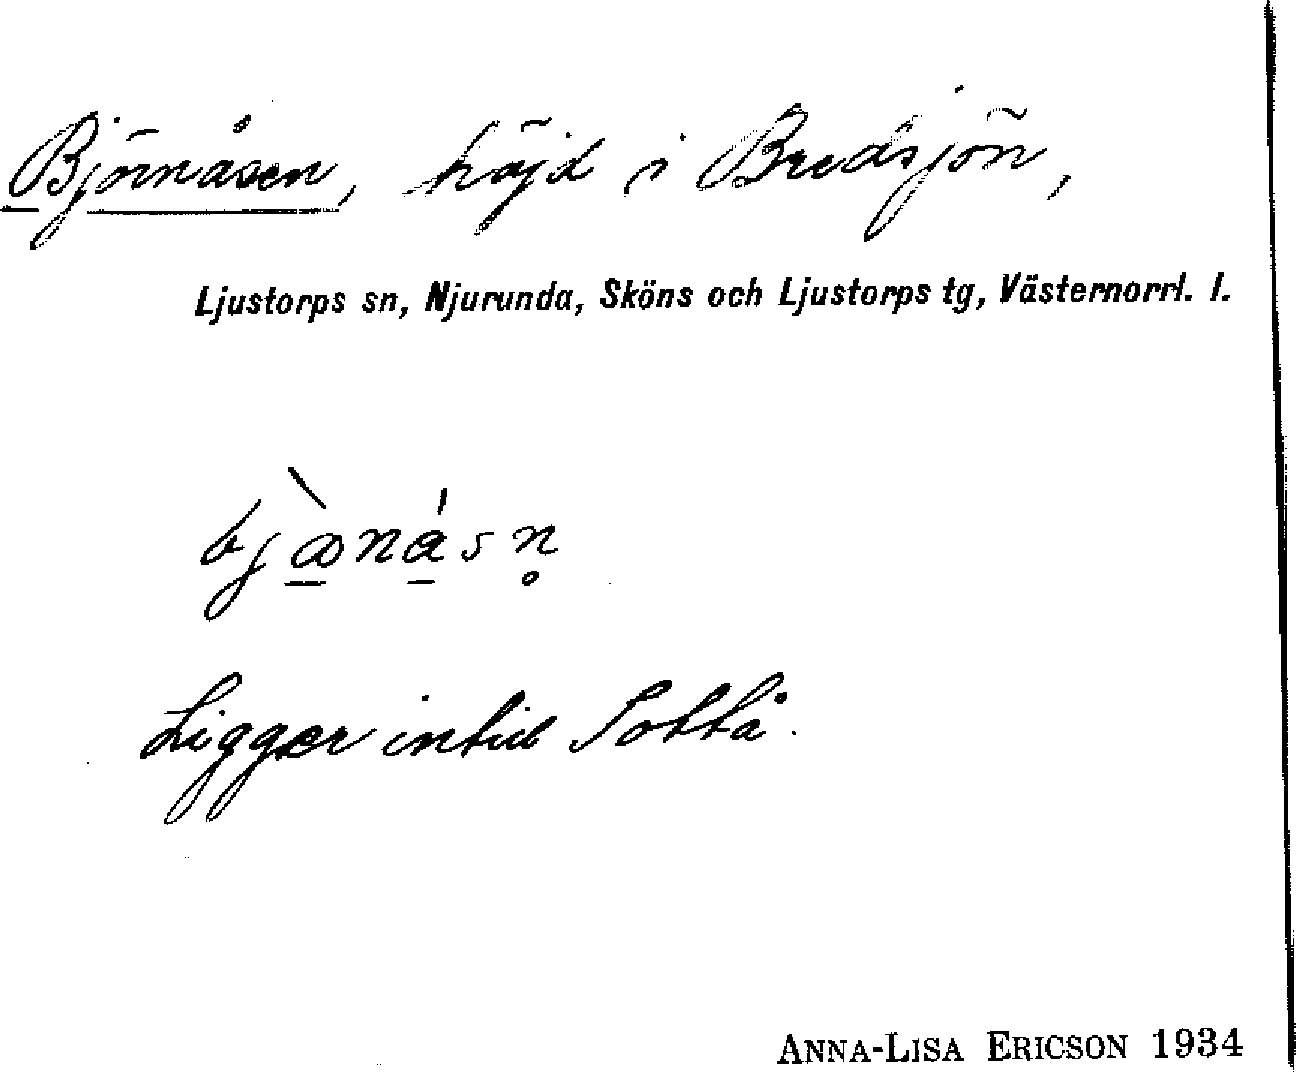 Björnåsen, höjd i Bredsjön,
Ljustorps sn, Njurunda, Sköns och Ljustorps tg, Västernorrl. l.
Ligger intill Sottå.
ANNA-LISA ERICSON 1934